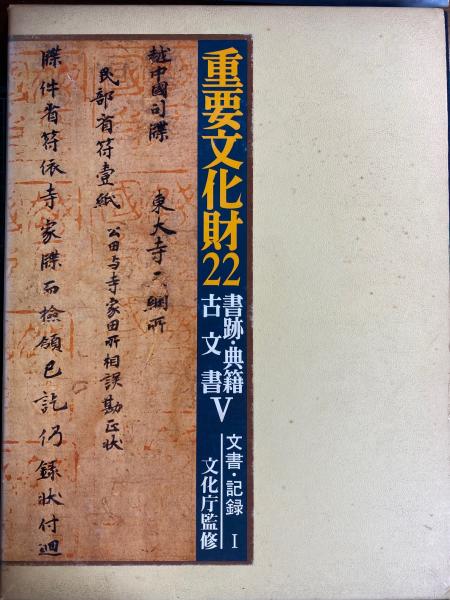 重要文化財22
書跡・典籍
古文書V
文書・記録 I
文化庁監修
越中國司牒 東大寺三綱所
民部省符壹紙 公田与寺家田所相誤勘正状
牒件省符依寺家牒而檢領已訖仍錄状付廻